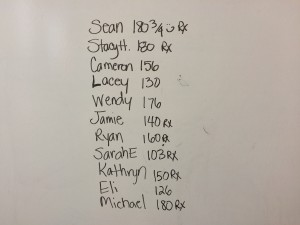 Sean 180 3/4 :) RX
Stacy H. 180 RX
Cameron 156
Lacey 130
Wendy 176
Jamie 140 RX
Ryan 160 RX
Sarah E 103 RX
Kathryn 150 RX
Eli 126
Michael 180 RX